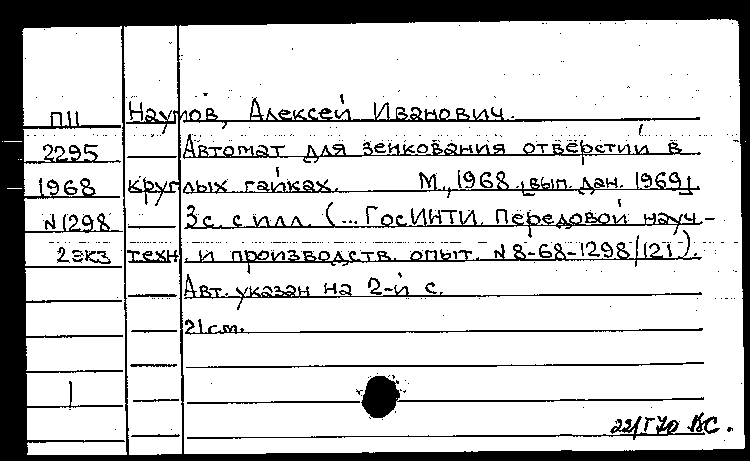 П11 Наумов, Алексей Иванович.
2295 Автомат для зенкования отверстий в
1968 круглых гайках. М., 1968 [вып. дан. 1969].
N1298 3 с. с илл. (...ГосИНТИ. Передовой науч-
2 экз техн. и производств. опыт. N 8-68-1298/121).
Авт. указан на 2-й с.
21 см.
22/I 70 ВС.